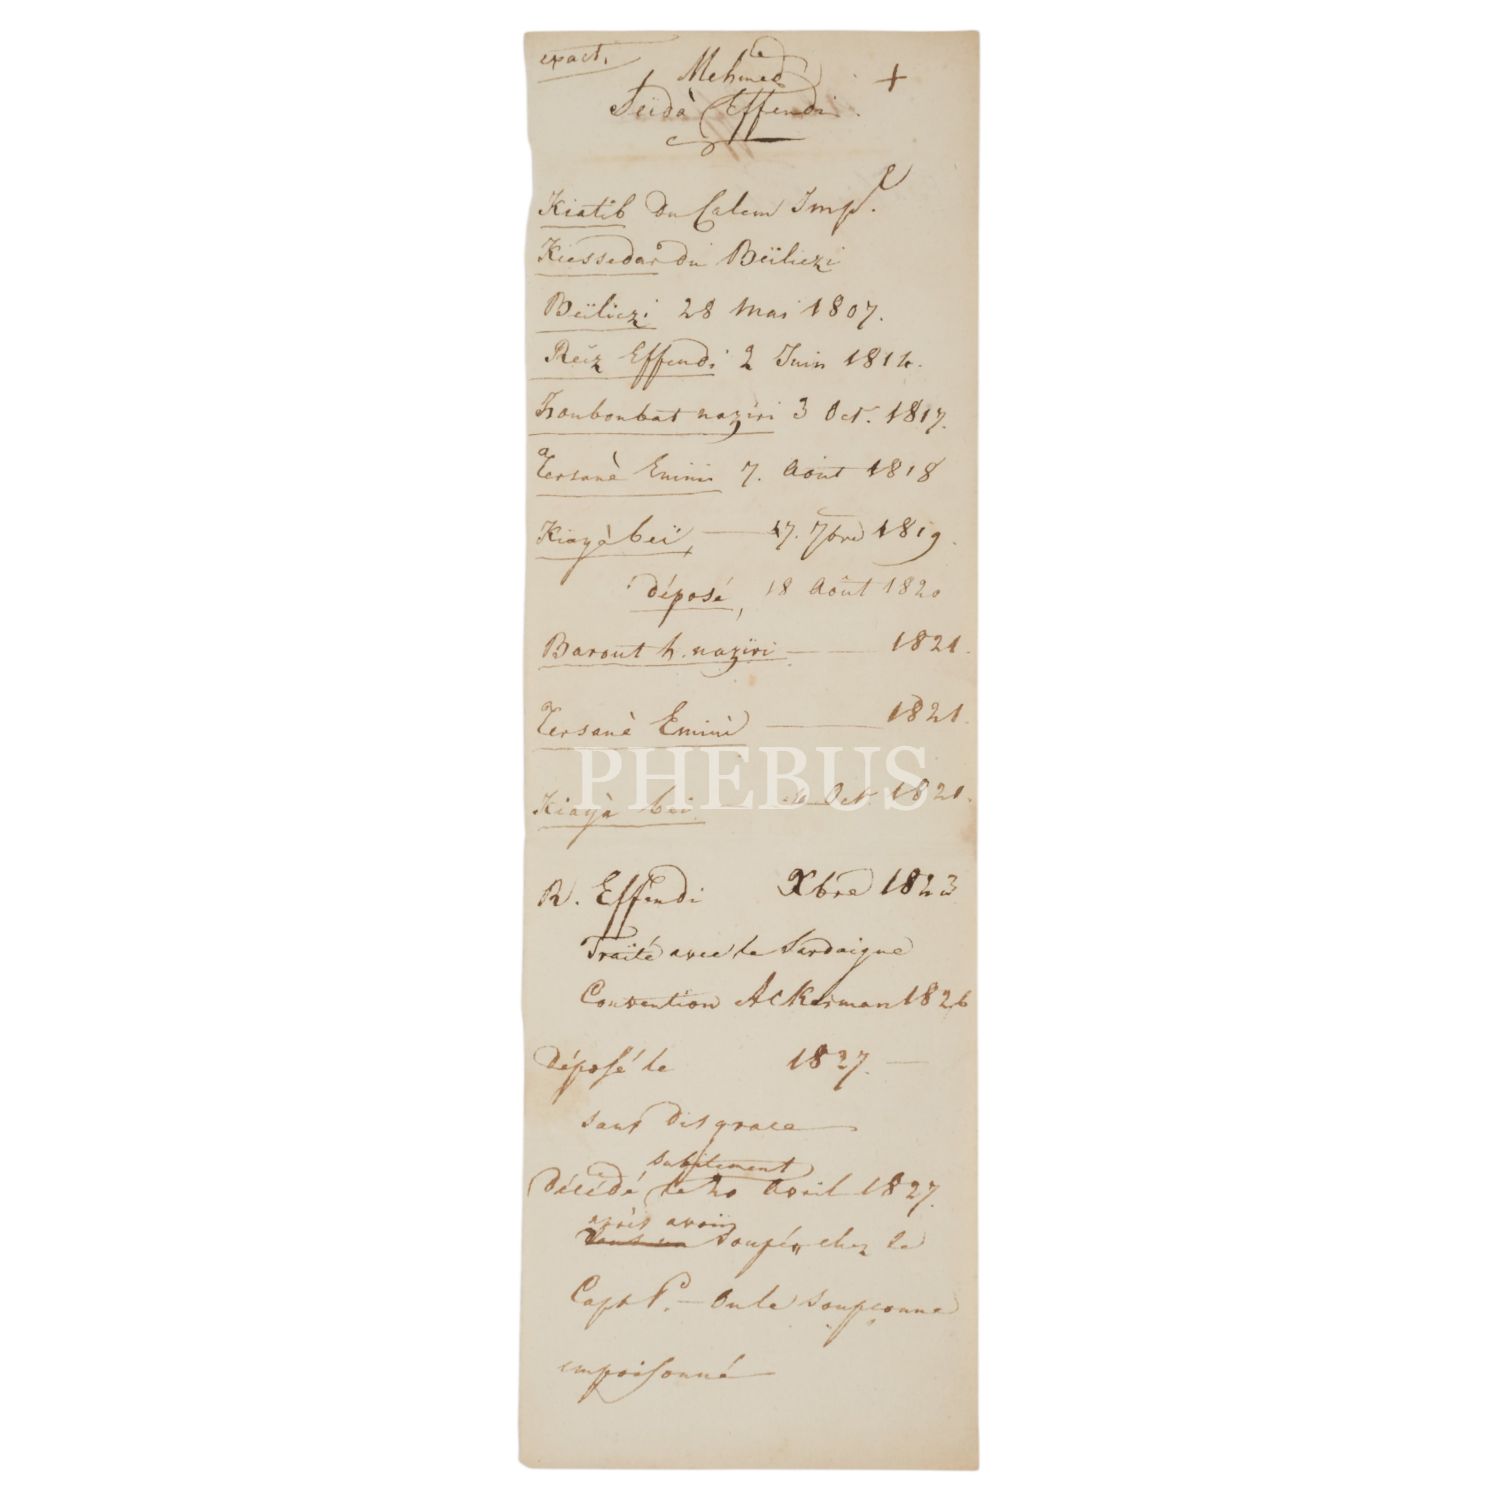 exact.
Mehmed +
Seïdà Effendi.
Kiatib du Calem Imp.l
Kiessedar du Beïliczi
Beïliczi 28 Mai 1807.
Reïz Effendi 2 Juin 1814.
Zouboubat naziri 3 Oct. 1817.
Tersanè Emini 7. Août 1818
Kiayà beï, — 17. 7bre 1819.
déposé, 18 Août 1820
Barout h. nazïri — 1821.
Tersanè Emini — 1821.
Kiayà beï — Oct. 1821.
R. Effendi Xbre 1823
Traité avec la Sardaigne
Convention Ackerman 1826
déposé le 1827. —
sans disgrace —
subitement
Décédé le 20 Avril 1827.
après avoir
soupé chez le
Capt P. — On le soupçonne
empoisonné —
PHEBUS